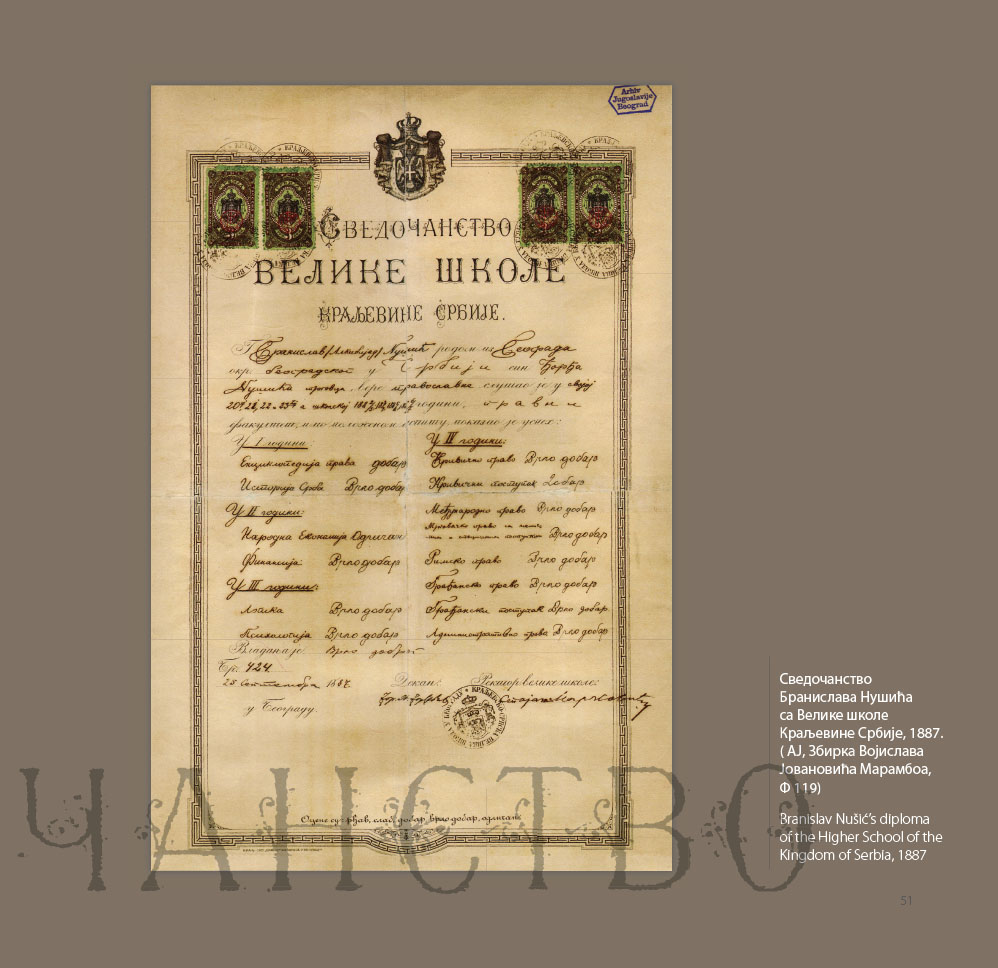 Arhiv
Jugoslavije
Beograd
Сведочанство
ВЕЛИКЕ ШКОЛЕ
КРАЉЕВИНЕ СРБИЈЕ.
Г. Бранислав (Алкибијад) Нушић родом из Београда
окр. београдског у Србији син Ђорђа
Нушића трговца, вере православне слушао је у својој
20, 21, 22 и 23 и школској години, правни
факултет, и по положеном испиту, показао је успех:
У I години:
Енциклопедија права добар
Историја Срба Врло добар
У II години:
Народна Економија Одличан
Финансија Врло добар
У III години:
Логика Врло добар
Психологија Врло добар
У IV години:
Кривично право Врло добар
Кривични поступак Добар
Међународно право Врло добар
право Врло добар
Римско право Врло добар
Грађанско право Врло добар
Грађански поступак Врло добар
Административно право Врло добар
Владања је Врло доброг
Бр. 424.
25 Септембра 1887.
у Београду.
Декан:
Ректор велике школе:
Оцене су: рђав, слаб, добар, врло добар, одличан
ЧАНСТВО
Сведочанство
Бранислава Нушића
са Велике школе
Краљевине Србије, 1887.
( АЈ, Збирка Војислава
Јовановића Марамбоа,
Ф 119)
Branislav Nušić’s diploma
of the Higher School of the
Kingdom of Serbia, 1887
51